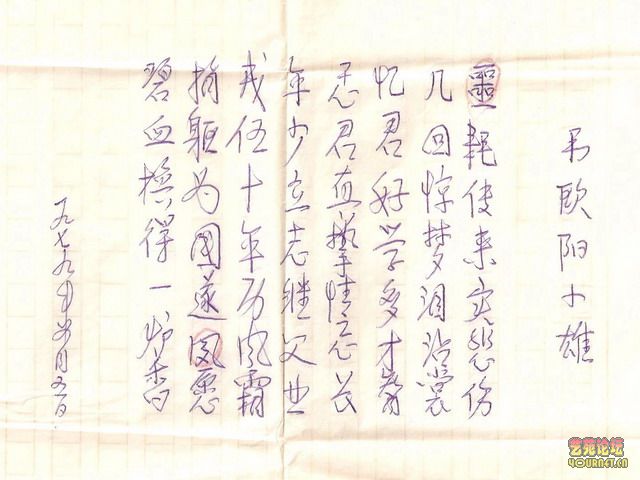 吊欧阳小雄
噩耗传来实悲伤
几回惊梦泪沾裳
忆君好学多才
君真挚情意长
年少立志继父业
戎伍十年历风霜
捐躯为国遂夙愿
碧血换得一炉香
一九七九年六月五日
艺苑论坛
4OURNET.CN